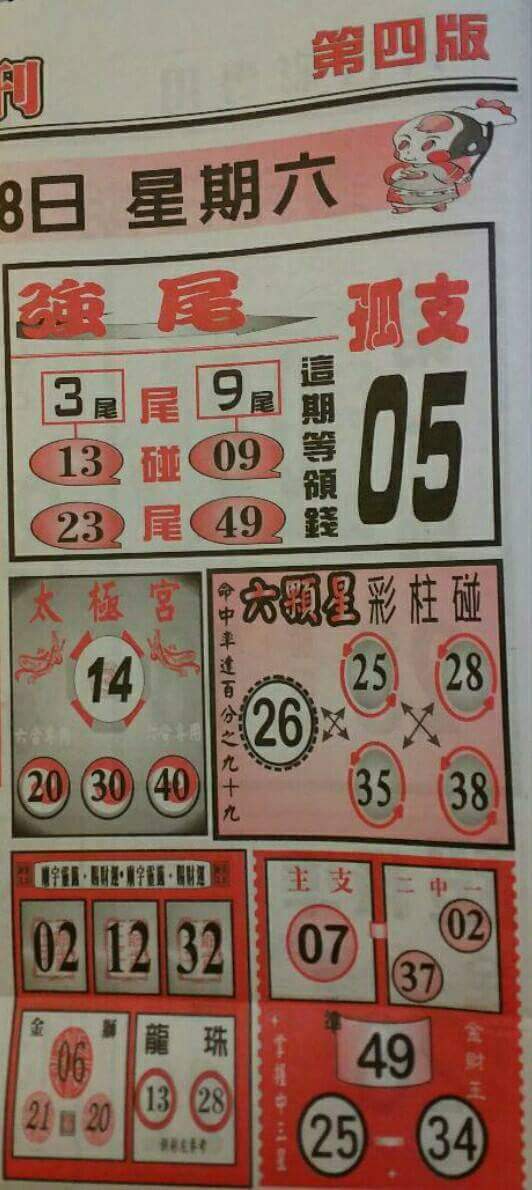 刊
第四版
8日 星期六
強尾
孤支
3尾 尾 9尾
13 碰 09
23 尾 49
這期等領錢
05
太極宮
14
六合專用 六合專用
20 30 40
命中率達百分之九十九
六顆星彩柱碰
26
25 28
35 38
02 12 32
金獅
06
21 20
龍珠
13 28
主支
07
二中一
02
37
準
49
金財王
掌握中三星
25 34